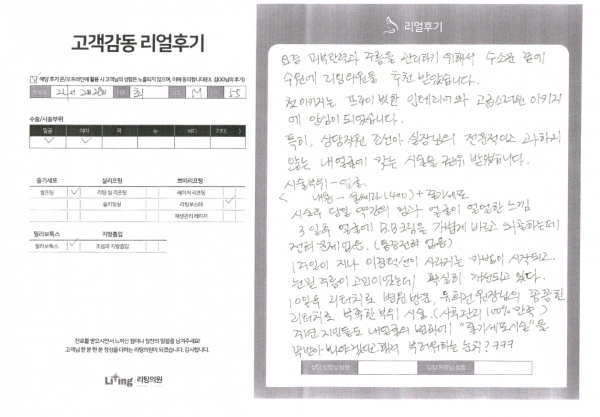 고객감동 리얼후기
해당 후기 온/오프라인에 활용 시 고객님의 성함은 노출되지 않으며, 이에 동의합니다(EX. 김OO님의 후기)
최
M
55
수술/시술부위
얼굴 이마 코 눈 바디 기타
줄기세포 실리프팅 쁘띠리프팅
셀프팅 리팅 실 리프팅 레이저 리프팅
울티킹실 리팅부스터
재생관리 레이저
필러보톡스 지방흡입
필러보톡스 초음파 지방흡입
진료를 받으시면서 느끼신 점이나 칭찬의 말씀을 남겨주세요!
고객님 한 분 한 분 정성을 다하는 리팅의원이 되겠습니다. 감사합니다.
Liting 리팅의원
리얼후기
요즘 피부탄력과 주름을 관리하기 위해서 수소문 끝에
수원에 리팅의원을 추천 받았습니다.
첫 이미지는 프라이빗한 인테리어와 고급스러운 이미지
에 안심이 되었습니다.
특히, 상담직원 조선아 실장님의 전문적이고 과하지
않는 내 얼굴에 맞는 시술을 권유 받았습니다.
시술부위 - 얼굴.
내용 - 울쎄라 (400) + 줄기세포
시술후 당일 약간의 멍과 얼굴이 얼얼한 느낌
3일후 얼굴에 B.B크림을 가볍게 바르고 외출하는데
전혀 문제 없음. (통증 전혀 없음)
1주일이 지나 이중턱선이 사라지는 마법이 시작되고.
눈밑 주름이 고민이었는데 확실히 개선되고 있다.
10일후 리터치로 병원 방문, 유희건 원장님의 꼼꼼한
리터치로 부족한 부위 시술. (사후관리 100% 만족)
주변 지인들도 내 얼굴의 변화에 "줄기세포시술"을
꼭 받아 봐야 겠다면서 부러워하는 눈치? ㅋㅋㅋ
상담 실장님 성함
담당 원장님 성함